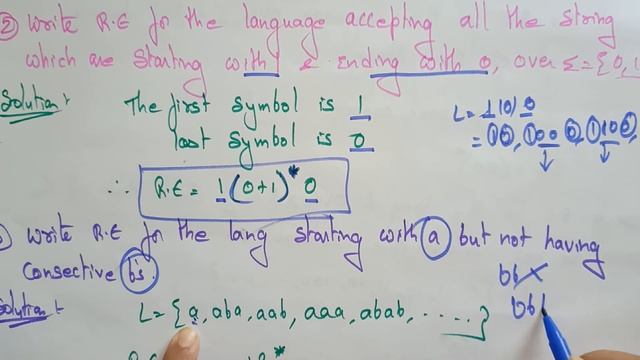 ② Write R.E for the language accepting all the string
which are starting with 1 & ending with 0, over Σ={0,1
Solution:
The first symbol is 1
last symbol is 0
L= 1101 0
= 10, 100 0, 1100,
∴ R.E = 1(0+1)* 0
Write R.E for the lang starting with a but not having
Consective b's.
bb ×
bb
Solution:
L= {a, aba, aab, aaa, abab, ......}